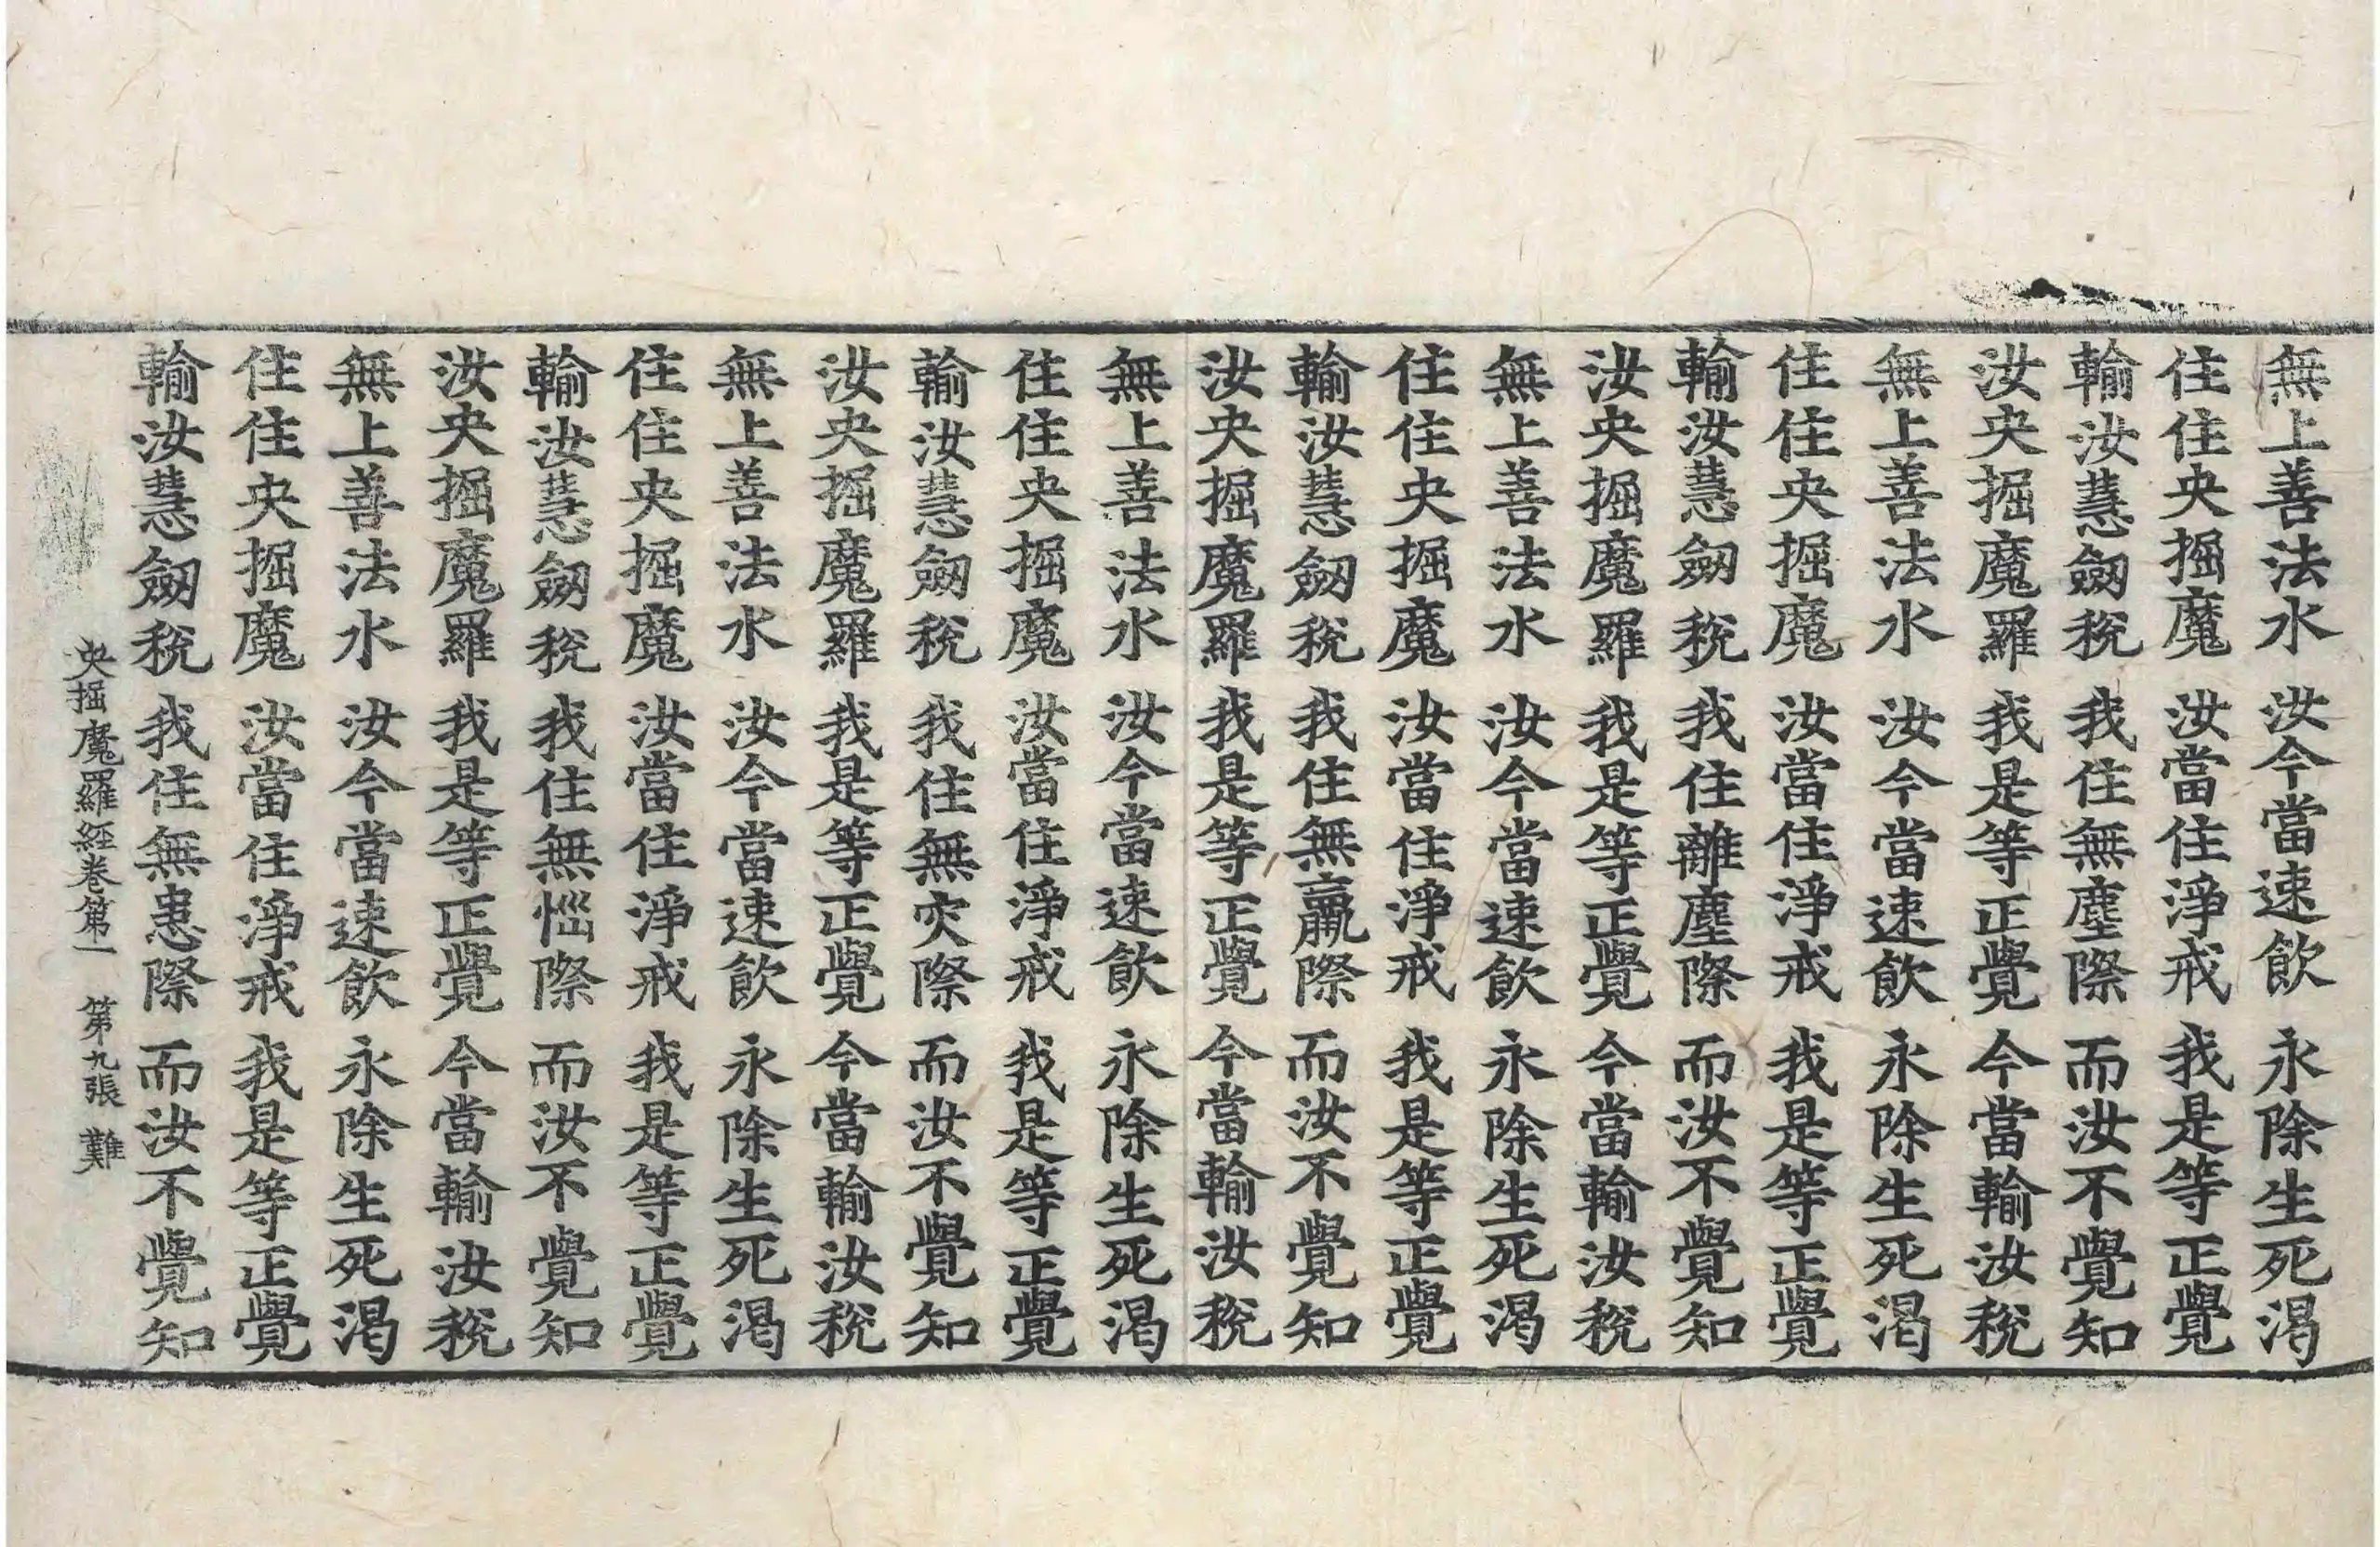 無上善法水 汝今當速飲 永除生死渴
住住央掘魔 汝當住淨戒 我是等正覺
輸汝慧劒稅 我住無塵際 而汝不覺知
汝央掘魔羅 我是等正覺 今當輸汝稅
無上善法水 汝今當速飲 永除生死渴
住住央掘魔 汝當住淨戒 我是等正覺
輸汝慧劒稅 我住離塵際 而汝不覺知
汝央掘魔羅 我是等正覺 今當輸汝稅
無上善法水 汝今當速飲 永除生死渴
住住央掘魔 汝當住淨戒 我是等正覺
輸汝慧劒稅 我住無羸際 而汝不覺知
汝央掘魔羅 我是等正覺 今當輸汝稅
無上善法水 汝今當速飲 永除生死渴
住住央掘魔 汝當住淨戒 我是等正覺
輸汝慧劒稅 我住無灾際 而汝不覺知
汝央掘魔羅 我是等正覺 今當輸汝稅
無上善法水 汝今當速飲 永除生死渴
住住央掘魔 汝當住淨戒 我是等正覺
輸汝慧劒稅 我住無惱際 而汝不覺知
汝央掘魔羅 我是等正覺 今當輸汝稅
無上善法水 汝今當速飲 永除生死渴
住住央掘魔 汝當住淨戒 我是等正覺
輸汝慧劒稅 我住無患際 而汝不覺知
央掘魔羅經卷第一 第九張 難